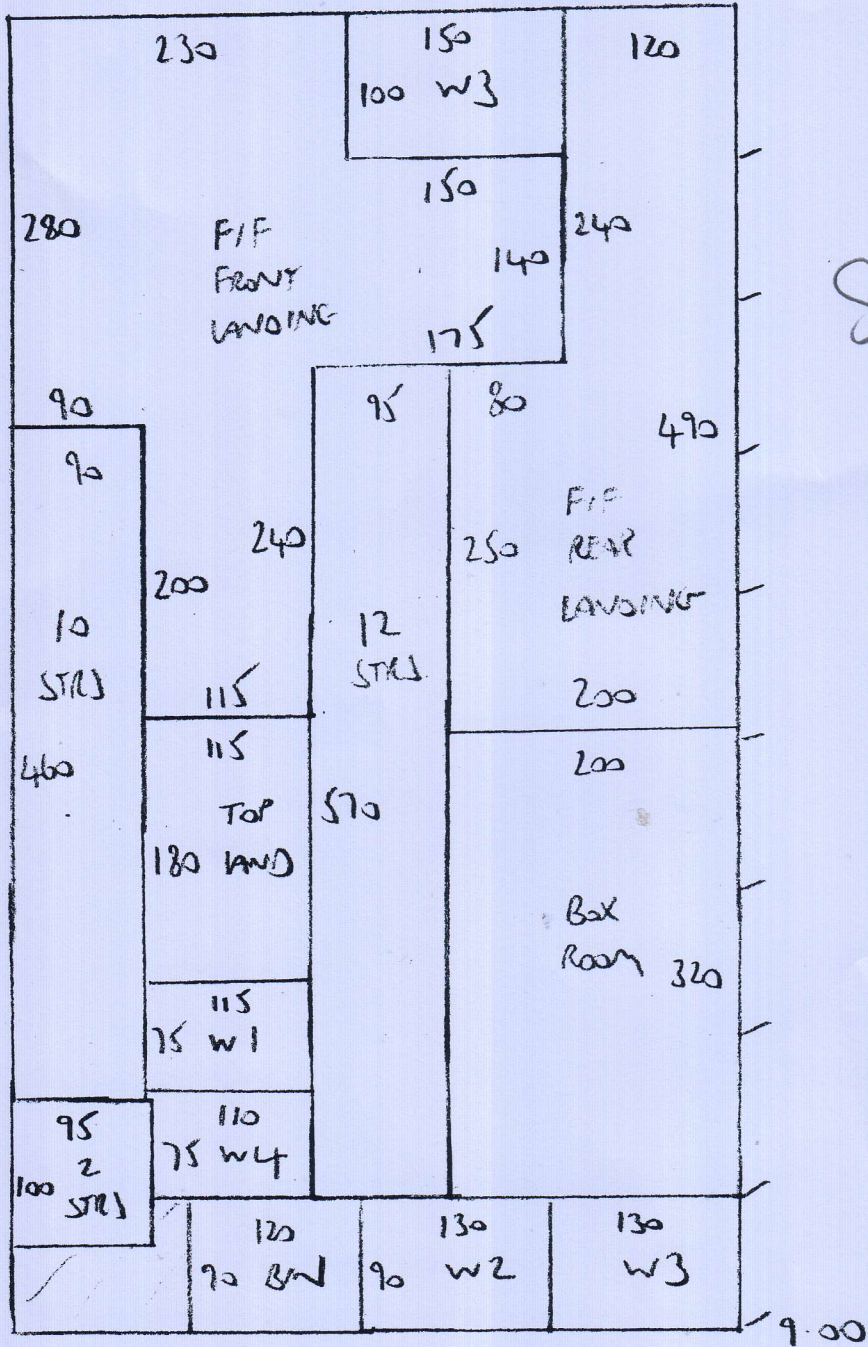 230
150
120
100 W3
150
280
F/F
FRONT
LANDING
240
140
175
90
95
80
490
90
240
F/F
REAR
LANDING
250
200
10
STRS
12
STRS
115
200
115
200
460
TOP
LAND
570
180
BOX
ROOM
320
115
75 W1
95
2
STRS
100
110
75 W4
120
90 BIN
130
90 W2
130
W3
9.00